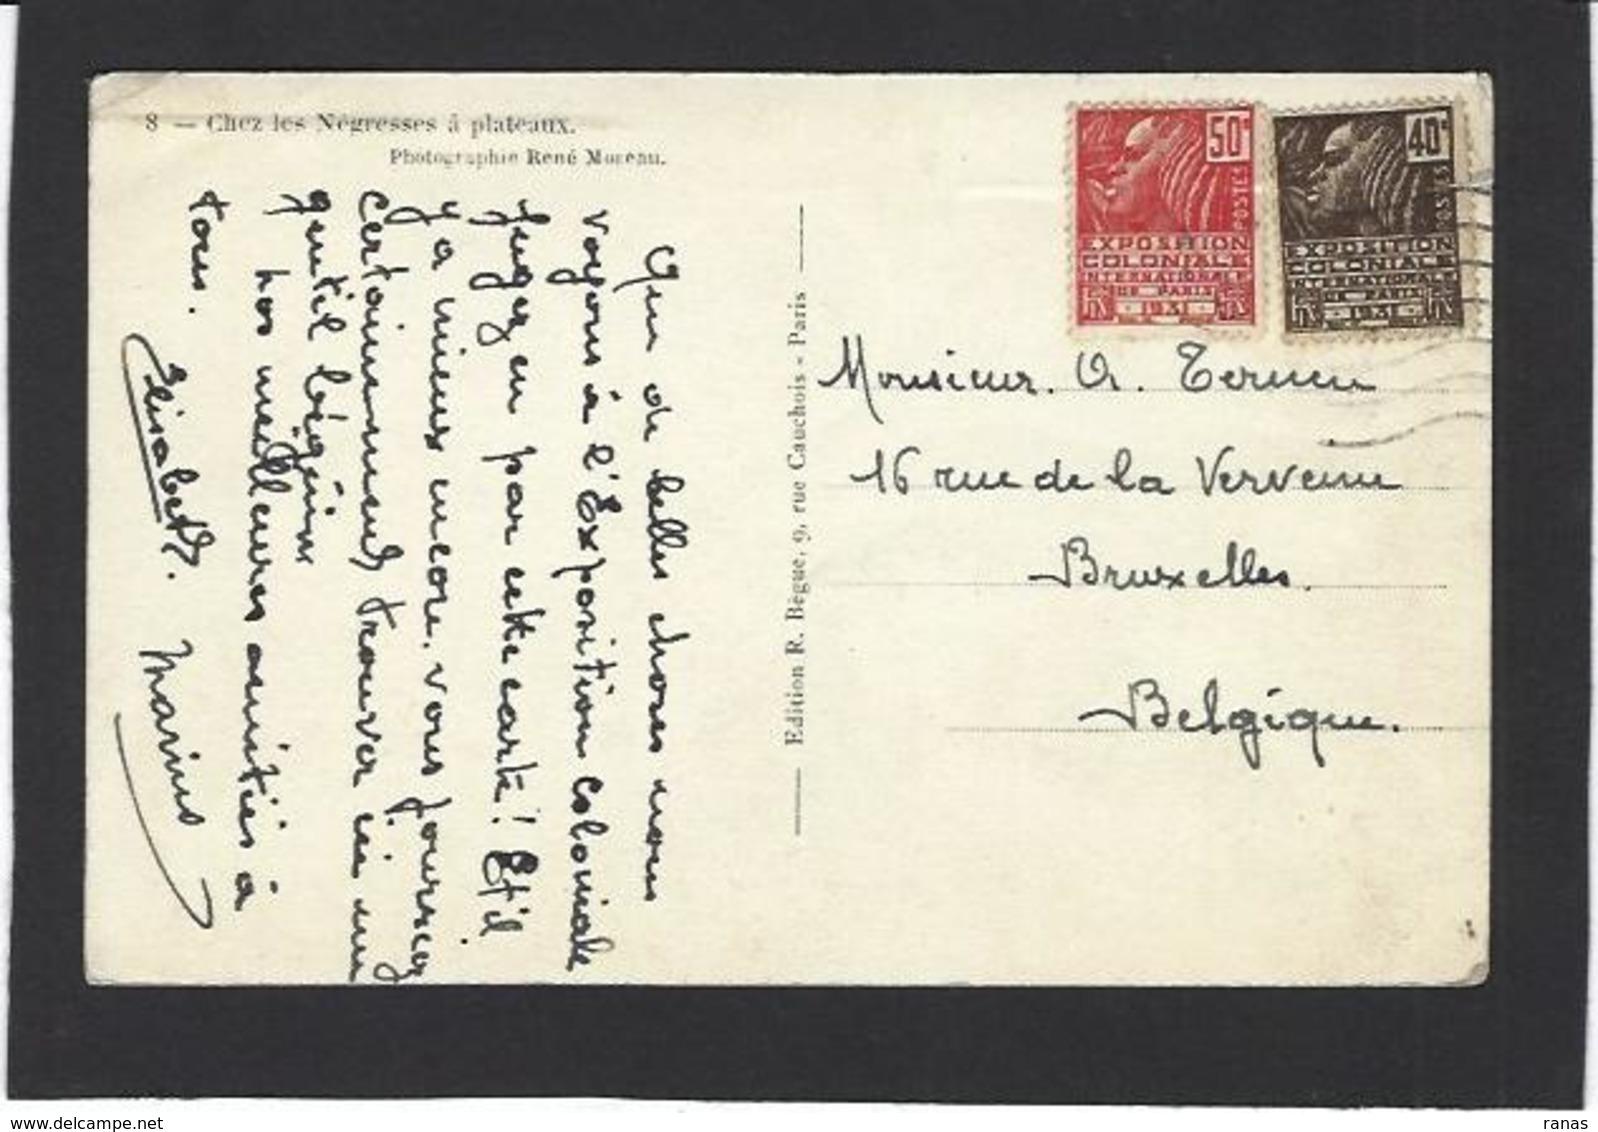 8 — Chez les Négresses à plateaux.
Photographie René Moreau.
Que de belles choses nous
voyons à l'Exposition coloniale
Jugez en par cette carte! Et il
y a mieux encore. vous pourriez
certainement trouver ici un
gentil béguin
nos meilleures amitiés à
tous.
Elisabeth. Marius
Edition R. Bègue, 9, rue Cauchois - Paris
50c
POSTES
EXPOSITION
COLONIALE
INTERNATIONALE
DE PARIS
1931
40c
POSTES
EXPOSITION
COLONIALE
INTERNATIONALE
DE PARIS
1931
Monsieur.
16 rue de la Verveine
Bruxelles.
Belgique.
ranas